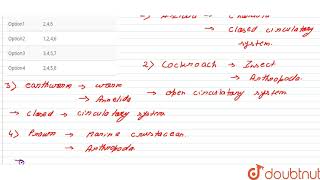 Option1 2,4,5
Option2 1,2,4,6
Option3 3,4,5,7
Option4 2,4,5,6
→ closed circulatory
system.
2) Cockroach → Insect
→ Arthropoda.
→ open circulatory system
3) earthworm → worm
→ Annelida
→ closed → circulatory system
4) Prawn → marine crustacean.
→ Arthropoda.
doubtnut